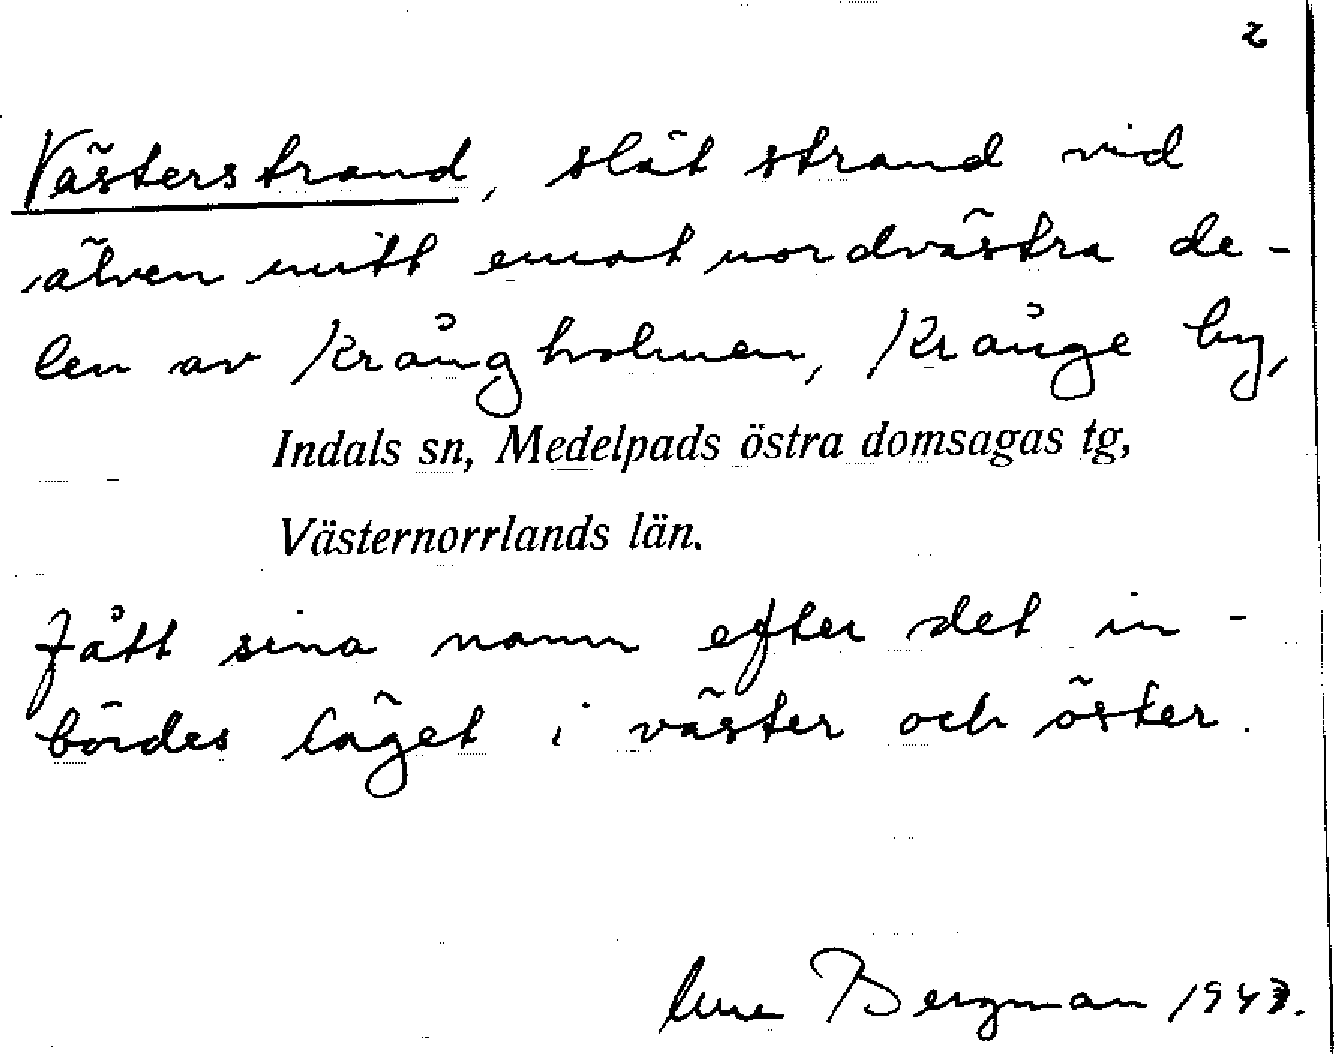 2
Västerstrand, slät strand vid
älven mitt emot nordvästra de-
len av Krångholmen, Krånge by,
Indals sn, Medelpads östra domsagas tg,
Västernorrlands län.
Fått sina namn efter det in-
bördes läget i väster och öster.
Bergman 1943.